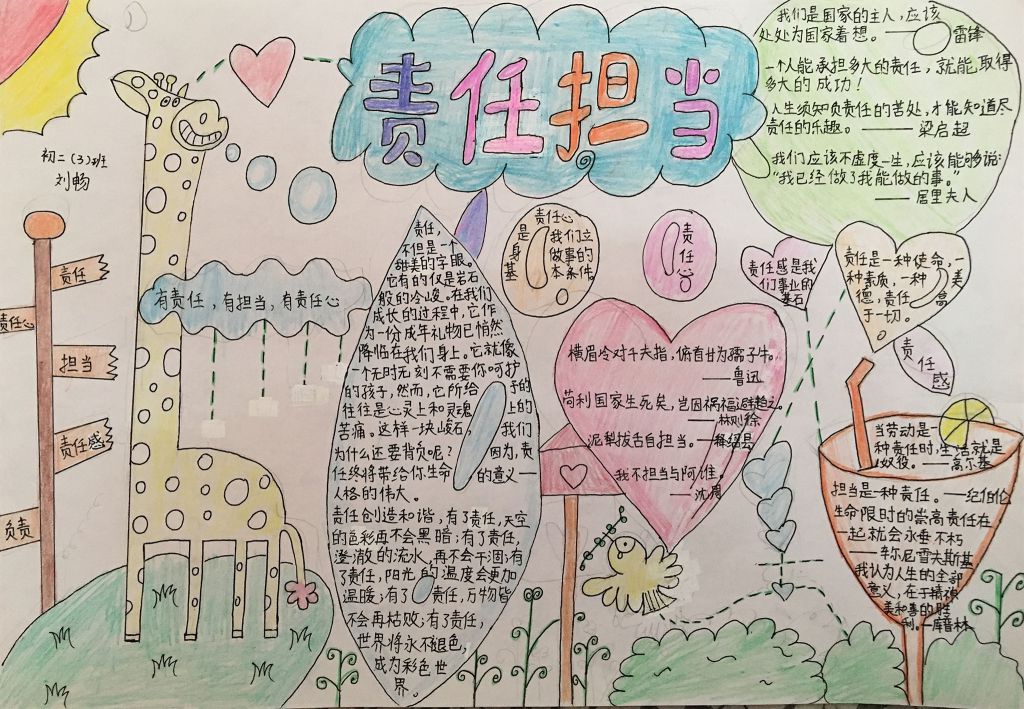 责任担当
初二(3)班
刘畅
我们是国家的主人,应该
处处为国家着想。——雷锋
一个人能承担多大的责任,就能取得
多大的成功!
人生须知负责任的苦处,才能知道尽
责任的乐趣。——梁启超
我们应该不虚度一生,应该能够说:
“我已经做了我能做的事。”
——居里夫人
责任
责任心
担当
责任感
负责
有责任,有担当,有责任心
责任,
不但是一个
甜美的字眼。
它有的仅是岩石
般的冷峻。在我们
成长的过程中,它作
为一份成年礼物已悄然
降临在我们身上。它就像
一个无时无刻不需要你呵护
的孩子,然而,它所给予的
往往是心灵上和灵魂上的
苦痛。这样一块峻石,我们
为什么还要背负呢?因为,责
任终将带给你生命的意义——
人格的伟大。
责任创造和谐,有了责任,天空
的色彩再不会黑暗;有了责任,
澄澈的流水,再不会干涸;有
了责任,阳光的温度会更加
温暖;有了责任,万物皆
不会再枯败;有了责任,
世界将永不褪色,
成为彩色世
界。
责任心
是我们立
身做事的
基本条件。
责任心
责任感是我
们事业的
基石
责任是一种使命,一
种素质,一种美
德,责任高
于一切。
责任感
横眉冷对千夫指,俯首甘为孺子牛。
——鲁迅
苟利国家生死矣,岂因祸福避趋之。
——林则徐
泥犁拔舌自担当。——释绍昙
我不担当与阿谁。
——沈周
当劳动是一
种责任时,生活就是
奴役。——高尔基
担当是一种责任。——纪伯伦
生命限时的崇高责任在
一起就会永垂不朽
——车尔尼雪夫斯基
我认为人生的全部
意义,在于精神
美和善的胜
利。